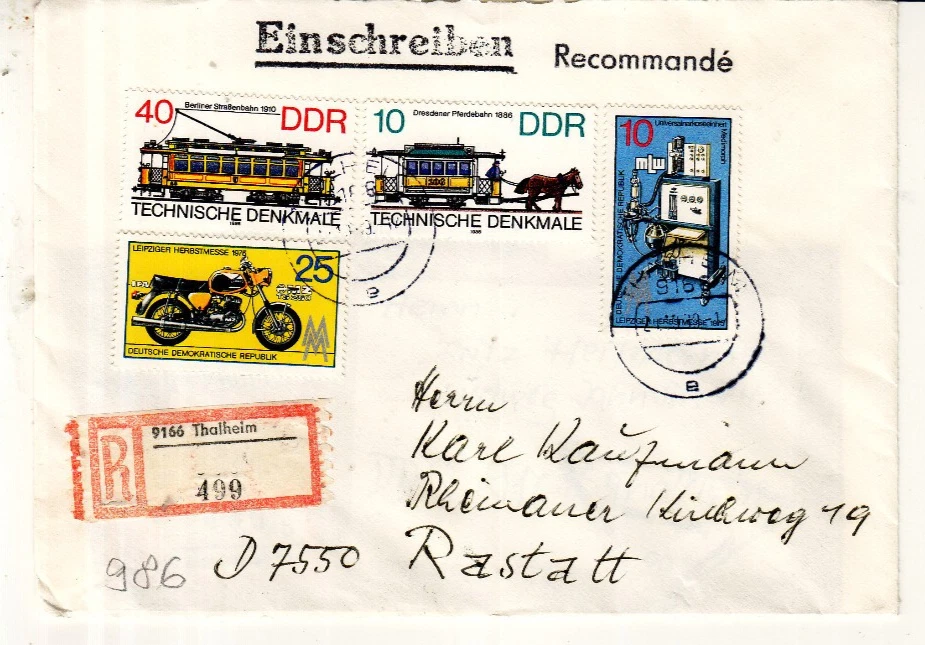 Einschreiben
Recommandé
40
Berliner Straßenbahn 1910
DDR
TECHNISCHE DENKMALE
1986
10
Dresdener Pferdebahn 1886
DDR
TECHNISCHE DENKMALE
1986
10
Universalnarkosegerät
Medimorph
DEUTSCHE DEMOKRATISCHE REPUBLIK
LEIPZIGER HERBSTMESSE 1975
LEIPZIGER HERBSTMESSE 1975
25
DEUTSCHE DEMOKRATISCHE REPUBLIK
MM
e
916
e
R
9166 Thalheim
499
Herrn
Karl Kaufmann
Rheinauer Kirchweg 19
D 7550 Rastatt
986